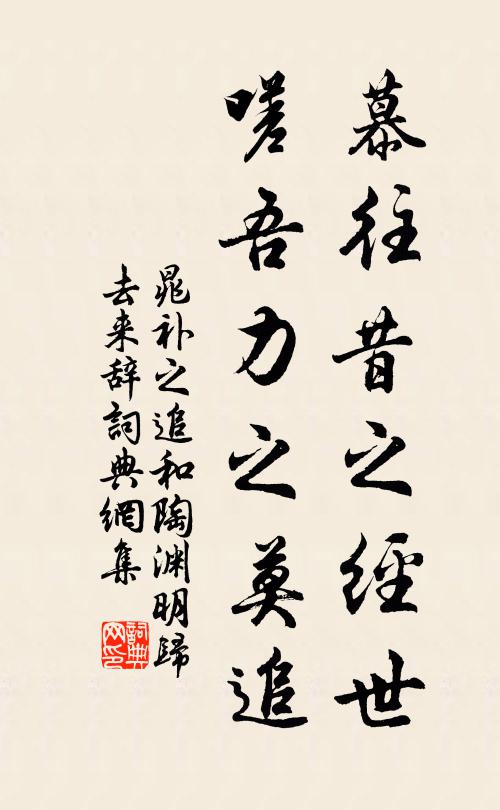 慕往昔之經世
嗟吾力之莫追
晁补之追和陶渊明歸
去来辞詞典網集
詞典网印